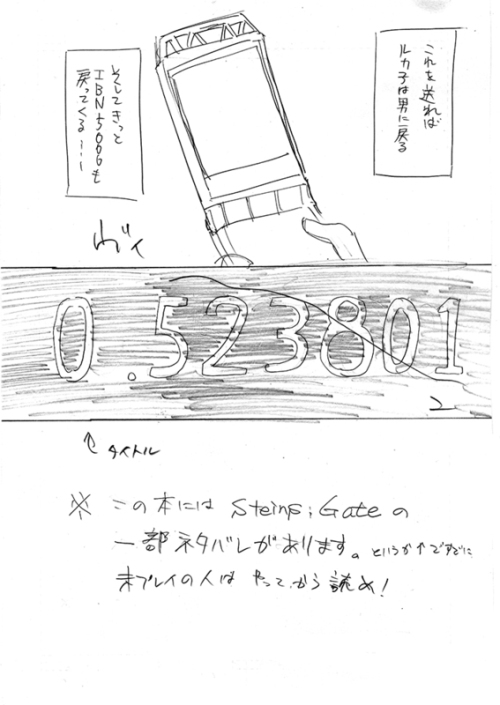 これを送れば
ルカ子は男に戻る
そしてきっと
IBN5000も
戻ってくる……
ヴィ
0.523801
2
タイトル
※ この本には Steins;Gateの
一部ネタバレがあります。というか↑ですでに
未プレイの人は やってから読め!